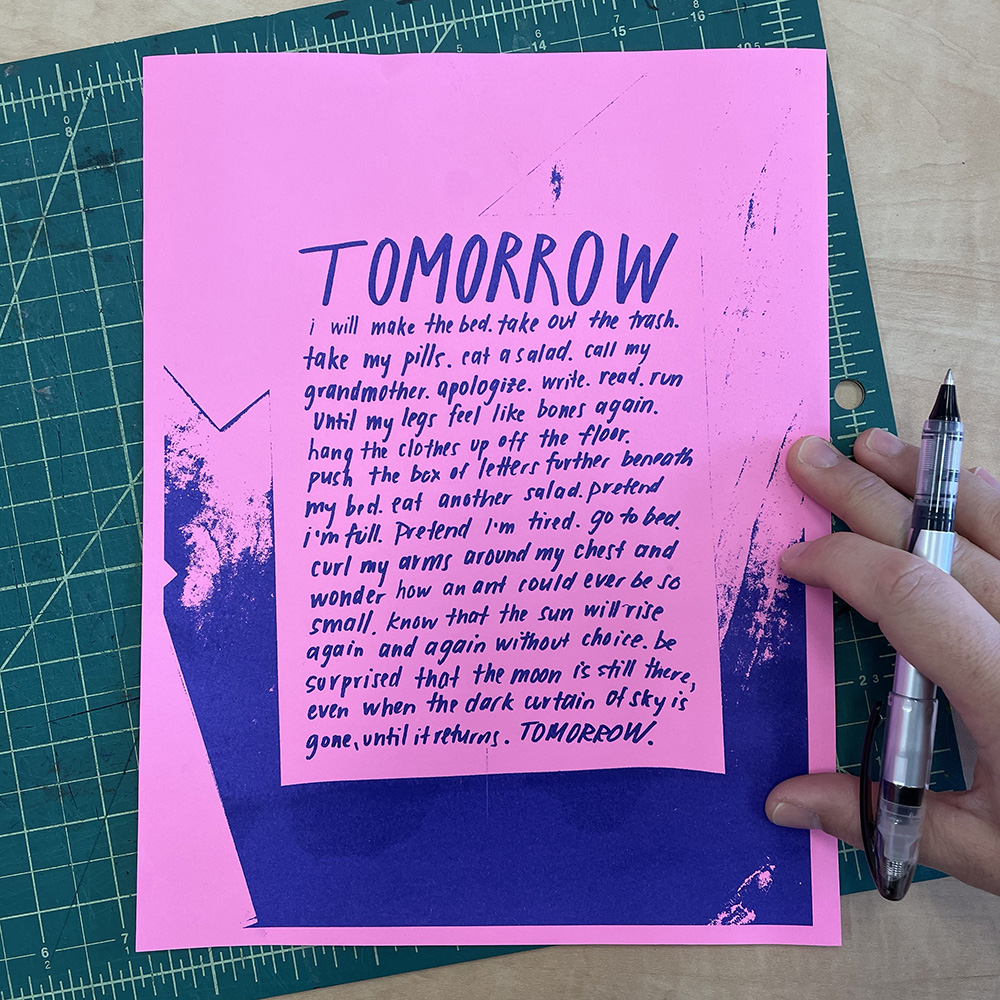 TOMORROW
i will make the bed. take out the trash.
take my pills. eat a salad. call my
grandmother. apologize. write. read. run
until my legs feel like bones again.
hang the clothes up off the floor.
push the box of letters further beneath
my bed. eat another salad. pretend
i'm full. Pretend I'm tired. go to bed.
curl my arms around my chest and
wonder how an ant could ever be so
small. know that the sun will rise
again and again without choice. be
surprised that the moon is still there,
even when the dark curtain of sky is
gone, until it returns. TOMORROW.